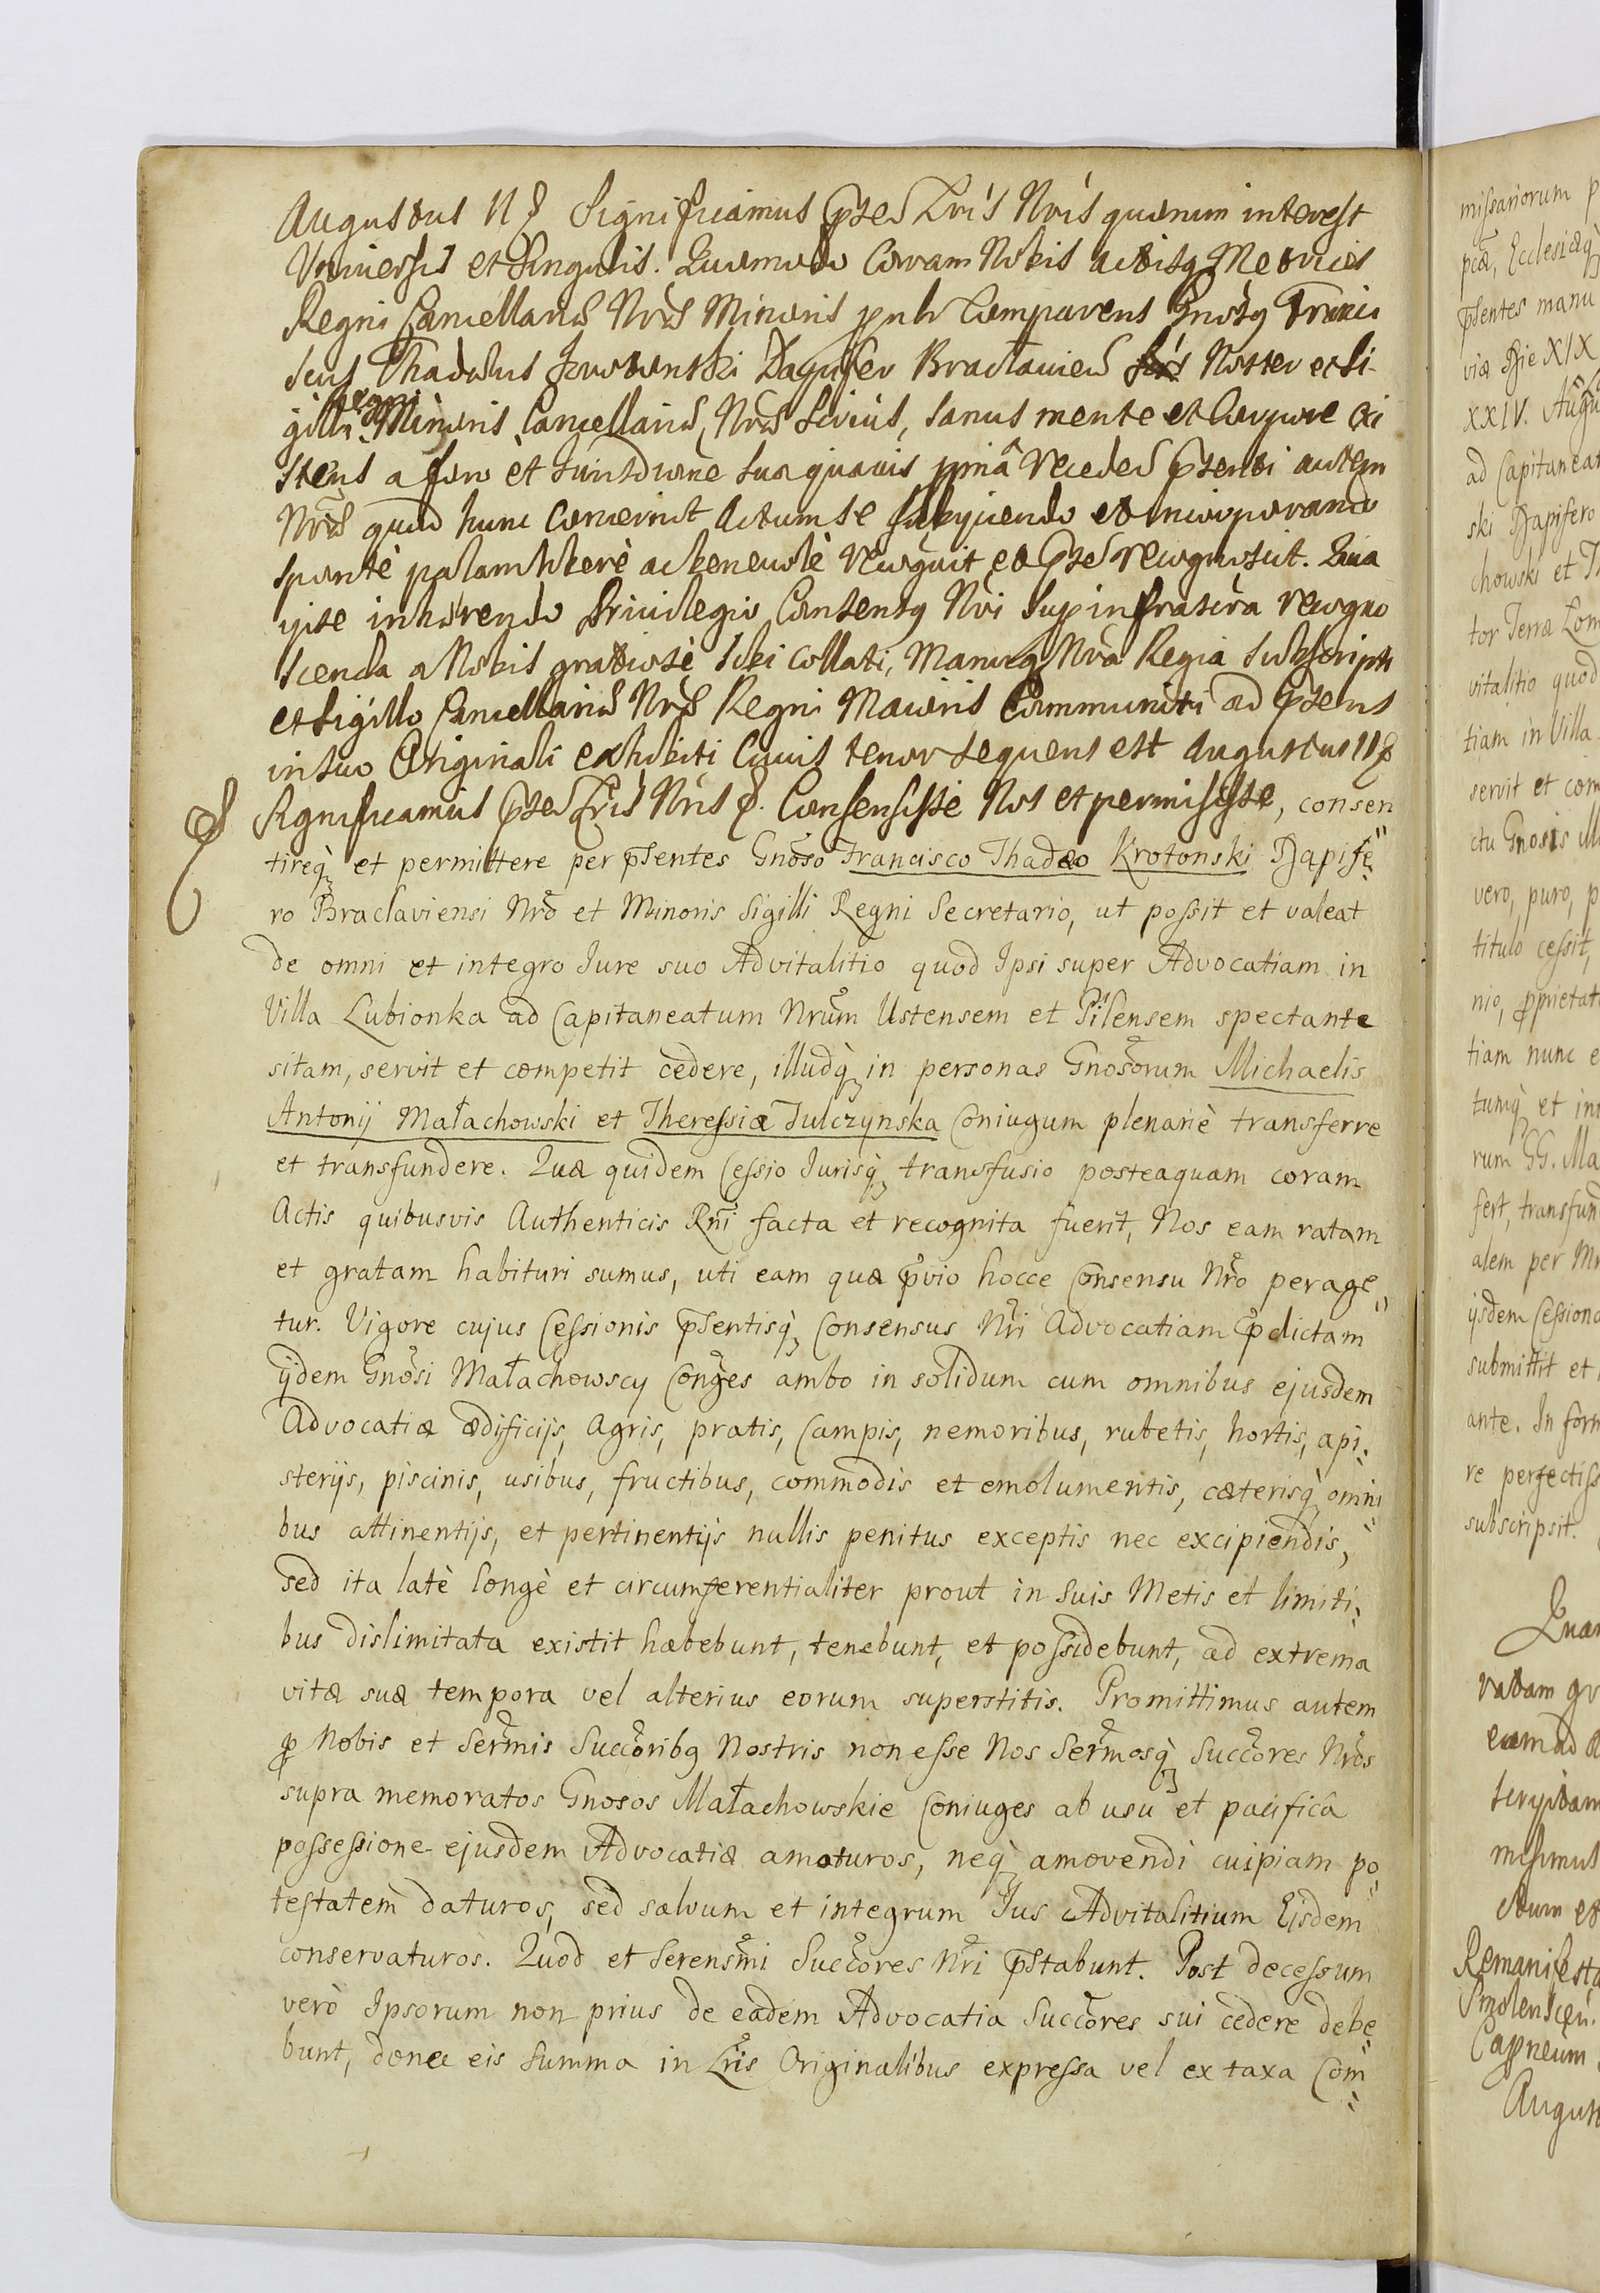 Augustus II Significamus pntes Lris Nris quorum interest
Universis et Singulis. Quomodo Coram Nobis actisq Metrices
Regni Cancellariæ Nræ Minoris psnlr Comparens Gnosq Francis
scus Thadæus Krotonski Dapifer Braclavien Noster et Si-
gilli Regni Minoris Cancellariæ Nræ Srius, sanus mente et Corpore exi
stens a foro et Jurisdicione sua quavis pria recedes psenti autem
Nræ quod hunc concernit Actum se subyciendo et incorporando
sponte palam libere ac benevolè recognit et pste recognoscit. Quia
ipse inhærendo Privilegio Consensq Nri sup infrascra recogno
scenda a Nobis gratiosè sibi collati, Manuq Nra Regia subscripti
et Sigillo Cancellariæ Nræ Regni Maioris Communiti ad psens
in suo Originali exhibiti Cuius tenor sequens est Augustus II
Significamus pntes Lris Nris &. Consensisse Nos et permisisse, consen
tireq et permittere per psentes Gnoso Francisco Thadæo Krotonski Dapife
ro Braclaviensi Nro et Minoris Sigilli Regni Secretario, ut possit et valeat
de omni et integro Iure suo Advitalitio quod Ipsi super Advocatiam in
Villa Lubionka ad Capitaneatum Nrum Ustensem et Pilensem spectante
sitam, servit et competit cedere, illudq in personas Gnosorum Michaelis
Antonij Małachowski et Theressiæ Tulczynska Coniugum plenariè transferre
et transfundere. Quæ quidem Cessio Iurisq transfusio posteaquam coram
Actis quibusvis Authenticis Rni facta et recognita fuerit, Nos eam ratam
et gratam habituri sumus, uti eam quæ pvio hocce Consensu Nro perage
tur. Vigore cujus Cessionis psentisq Consensus Nri Advocatiam pdictam
ijdem Gnosi Małachowscy Conges ambo in solidum cum omnibus ejusdem
Advocatiæ ædificijs, Agris, pratis, Campis, nemoribus, rubetis, hortis, api
sterijs, piscinis, usibus, fructibus, commodis et emolumentis, cæterisq omni
bus attinentijs, et pertinentijs nullis penitus exceptis nec excipiendis,
sed ita latè longè et circumferentialiter prout in suis Metis et limiti
bus dislimitata existit habebunt, tenebunt, et possidebunt, ad extrema
vitæ suæ tempora vel alterius eorum superstitis. Promittimus autem
p Nobis et Sermis Succoribq Nostris non esse Nos Sermosq Succores Nros
supra memoratos Gnosos Małachowskie Coniuges ab usu et pacificâ
possessione ejusdem Advocatiæ amoturos, neq amovendi cuipiam po
testatem daturos, sed salvum et integrum Ius Advitalitium Eisdem
conservaturos. Quod et Serensmi Succores Nri pstabunt. Post decessum
verò Ipsorum non prius de eadem Advocatia Succores sui cedere debe
bunt, donec eis summa in Lris Originalibus expressa vel ex taxa Com